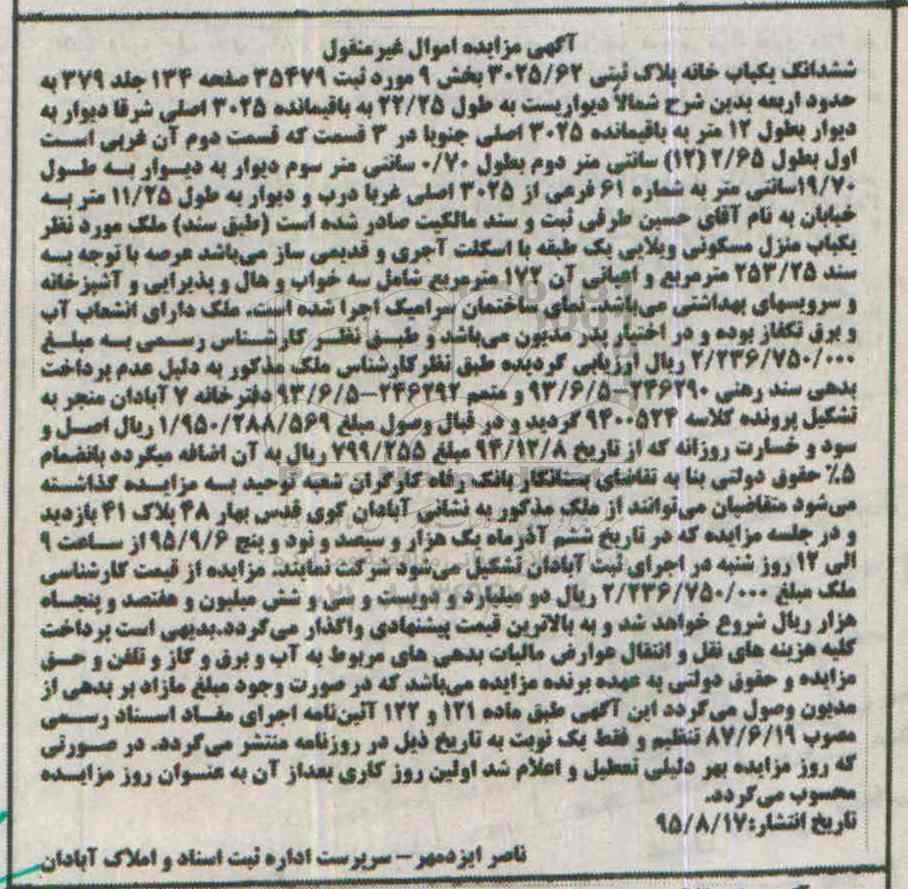 آگهی مزایده اموال غیرمنقول
ششدانگ یکباب خانه پلاک ثبتی ۳۰۲۵/۶۲ بخش ۹ مورد ثبت ۳۵۴۷۹ صفحه ۱۳۴ جلد ۳۷۹ به
حدود اربعه بدین شرح شمالاً دیواریست به طول ۲۲/۲۵ به باقیمانده ۳۰۲۵ اصلی شرقا دیوار به
دیوار بطول ۱۲ متر به باقیمانده ۳۰۲۵ اصلی جنوبا در ۳ قسمت که قسمت دوم آن غربی است
اول بطول ۲/۶۵ (۱۲) سانتی متر دوم بطول ۰/۷۰ سانتی متر سوم دیوار به دیوار به طول
۱۹/۷۰سانتی متر به شماره ۶۱ فرعی از ۳۰۲۵ اصلی غربا درب و دیوار به طول ۱۱/۲۵ متر به
خیابان به نام آقای حسین طرفی ثبت و سند مالکیت صادر شده است (طبق سند) ملک مورد نظر
یکباب منزل مسکونی ویلایی یک طبقه با اسکلت آجری و قدیمی ساز می‌باشد عرصه با توجه به
سند ۲۵۳/۲۵ مترمربع و اعیانی آن ۱۷۲ مترمربع شامل سه خواب و هال و پذیرایی و آشپزخانه
و سرویسهای بهداشتی می‌باشد. نمای ساختمان سرامیک اجرا شده است. ملک دارای انشعاب آب
و برق تکفاز بوده و در اختیار پدر مدیون می‌باشد و طبق نظر کارشناس رسمی به مبلغ
۲/۲۳۶/۷۵۰/۰۰۰ ریال ارزیابی گردیده طبق نظر کارشناس ملک مذکور به دلیل عدم پرداخت
بدهی سند رهنی ۲۴۶۲۹۰-۹۳/۶/۵ و متمم ۲۴۶۲۹۲-۹۳/۶/۵ دفترخانه ۷ آبادان منجر به
تشکیل پرونده کلاسه ۹۴۰۰۵۲۴ گردید و در قبال وصول مبلغ ۱/۹۵۰/۲۸۸/۵۶۹ ریال اصل و
سود و خسارت روزانه که از تاریخ ۹۴/۱۲/۸ مبلغ ۷۹۹/۲۵۵ ریال به آن اضافه میگردد بانضمام
۵٪ حقوق دولتی بنا به تقاضای بستانکار بانک رفاه کارگران شعبه توحید به مزایده گذاشته
می‌شود متقاضیان می‌توانند از ملک مذکور به نشانی آبادان کوی قدس بهار ۴۸ پلاک ۴۱ بازدید
و در جلسه مزایده که در تاریخ ششم آذرماه یک هزار و سیصد و نود و پنج ۹۵/۹/۶ از ساعت ۹
الی ۱۲ روز شنبه در اجرای ثبت آبادان تشکیل می‌شود شرکت نمایند. مزایده از قیمت کارشناسی
ملک مبلغ ۲/۲۳۶/۷۵۰/۰۰۰ ریال دو میلیارد و دویست و سی و شش میلیون و هفتصد و پنجاه
هزار ریال شروع خواهد شد و به بالاترین قیمت پیشنهادی واگذار می‌گردد.بدیهی است پرداخت
کلیه هزینه های نقل و انتقال عوارض مالیات بدهی های مربوط به آب و برق و گاز و تلفن و حق
مزایده و حقوق دولتی به عهده برنده مزایده می‌باشد که در صورت وجود مبلغ مازاد بر بدهی از
مدیون وصول می‌گردد این آگهی طبق ماده ۱۲۱ و ۱۲۲ آئین‌نامه اجرای مفاد اسناد رسمی
مصوب ۸۷/۶/۱۹ تنظیم و فقط یک نوبت به تاریخ ذیل در روزنامه منتشر می‌گردد. در صورتی
که روز مزایده بهر دلیلی تعطیل و اعلام شد اولین روز کاری بعداز آن به عنسوان روز مزایده
محسوب می‌گردد.
تاریخ انتشار:۹۵/۸/۱۷
ناصر ایزدمهر – سرپرست اداره ثبت اسناد و املاک آبادان